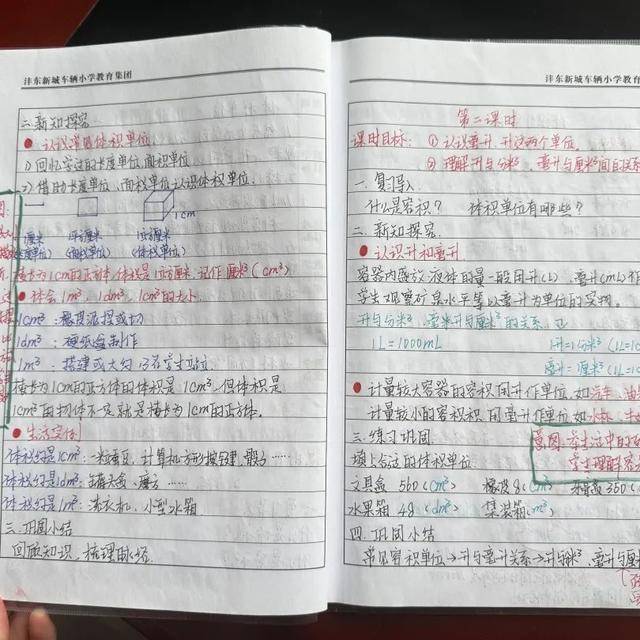 沣东新城车辆小学教育集团
二.新知探究
● 认识常见体积单位
1) 回忆学过的长度单位,面积单位
2) 借助长度单位、面积单位认识体积单位.
1cm
(面积单位) (体积单位)
棱长为1cm的正方体,体积是1立方厘米,记作厘米³(cm³)
● 体会1m³, 1dm³, 1cm³的大小
1cm³:橡皮泥捏或切
1dm³:硬纸盒制作
1m³:搭建或大约
棱长为1cm的正方体的体积是1cm³,但体积是
1cm³的物体不一定就是棱长为1cm的正方体.
● 生活实例
体积约是1cm³:一粒蚕豆,计算机方形按键,骰子……
体积约是1dm³:粉笔盒,魔方……
体积约是1m³:洗衣机,小型水箱
三.巩固小结
回顾知识,梳理脉络.
沣东新城车辆小学教育
第二课时
课时目标: ① 认识毫升,升这两个单位.
② 理解升与分米³,毫升与厘米³间的关系
一.复习导入
什么是容积? 体积单位有哪些?
二.新知探究.
● 认识升和毫升
容器内盛放液体的量一般用升(L)、毫升(mL)作
学生观察矿泉水等以毫升为单位的实物.
升与分米³,毫升与厘米³的关系
1L=1000mL
升=1分米³(1L=
毫升=厘米³(1
● 计量较大容器的容积,用升作单位,如汽车、油
计量较小的容积,用毫升作单位,如水杯、
三.练习巩固
填上合适的体积单位
意图:
学生理解容
文具盒 560(cm³) 橡皮8(cm³) 350(
水果箱 48(dm³) 集装箱(m³)
四.巩固小结
常见容积单位→升与毫升关系→升与分米³,毫升与厘